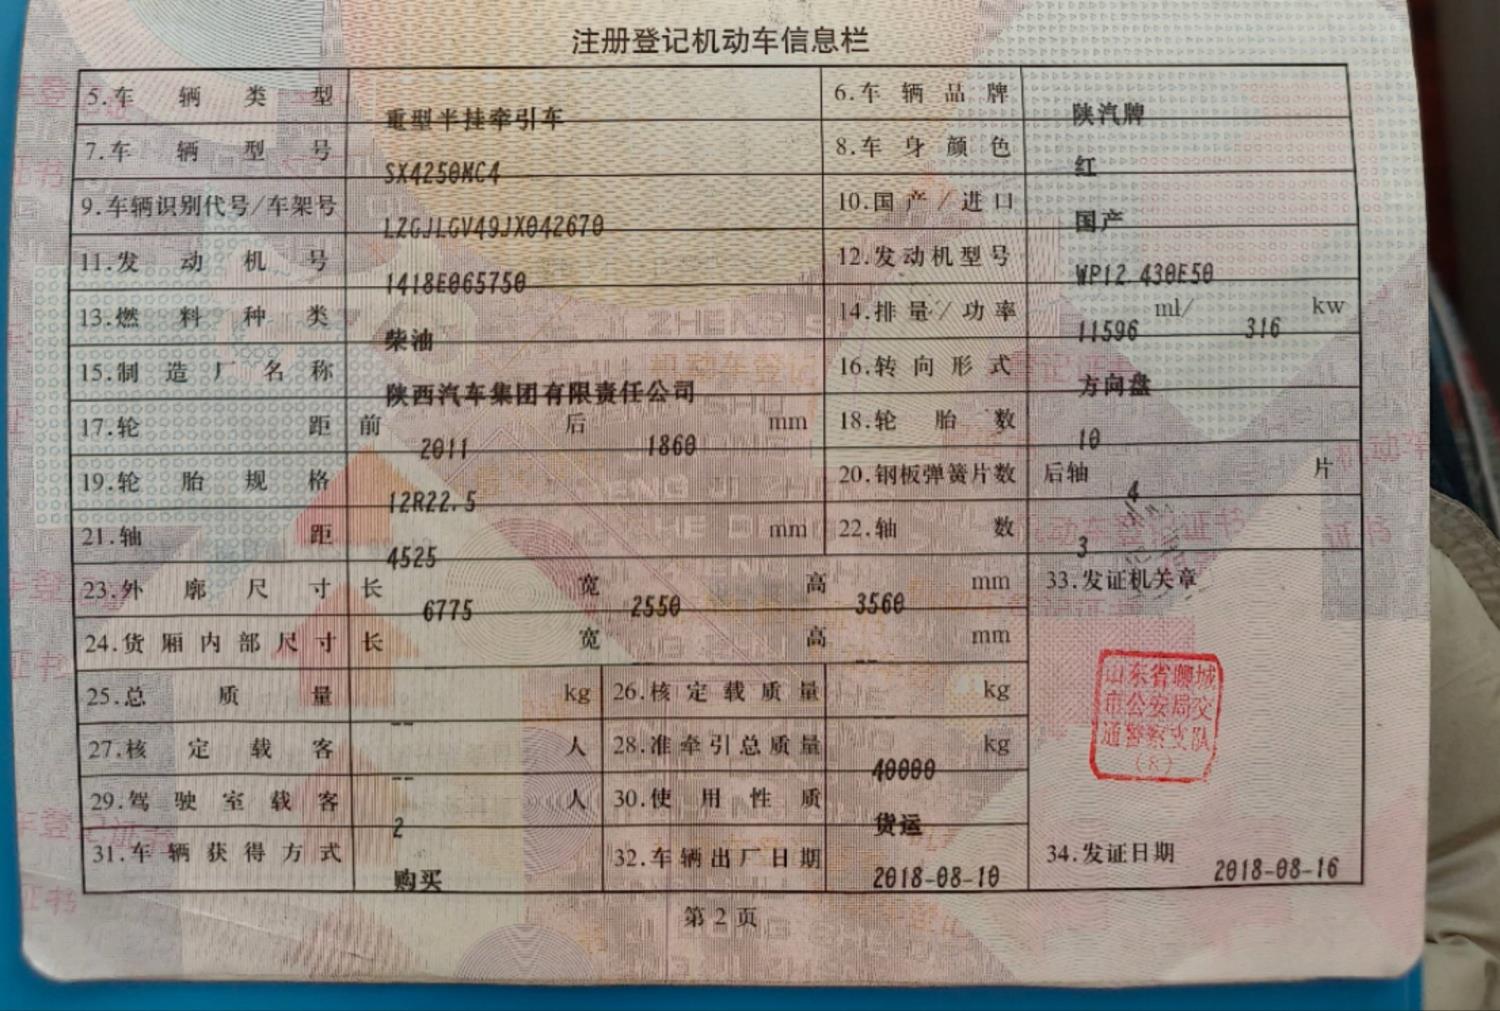 注册登记机动车信息栏
5.车辆类型 重型半挂牵引车 6.车辆品牌 陕汽牌
7.车辆型号 SX4250MC4 8.车身颜色 红
9.车辆识别代号/车架号 LZGJLGV49JX042670 10.国产/进口 国产
11.发动机号 1418E065750 12.发动机型号 WP12.430E50
13.燃料种类 柴油 14.排量/功率 11596 ml/ 316 kw
15.制造厂名称 陕西汽车集团有限责任公司 16.转向形式 方向盘
17.轮距 前 2011 后 1860 mm 18.轮胎数 10
19.轮胎规格 12R22.5 20.钢板弹簧片数 后轴 4 片
21.轴距 4525 mm 22.轴数 3
23.外廓尺寸 长 6775 宽 2550 高 3560 mm 33.发证机关章
24.货厢内部尺寸 长 -- 宽 -- 高 -- mm
25.总质量 -- kg 26.核定载质量 -- kg
27.核定载客 -- 人 28.准牵引总质量 40000 kg
29.驾驶室载客 2 人 30.使用性质 货运
31.车辆获得方式 购买 32.车辆出厂日期 2018-08-10 34.发证日期 2018-08-16
山东省聊城
市公安局交
通警察支队
(8)
第2页